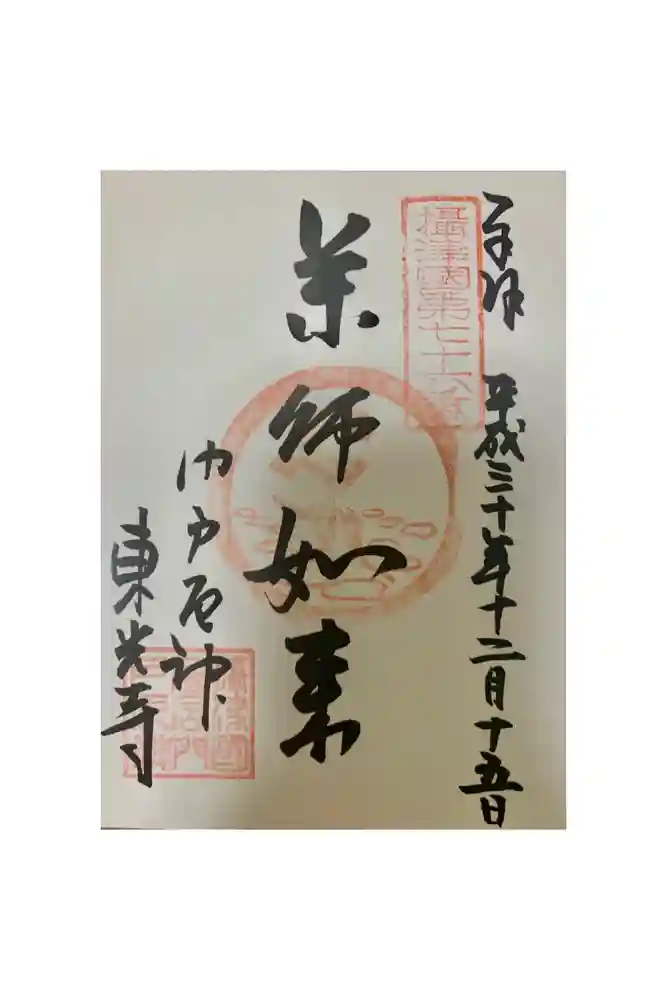 奉拝 平成三十年十二月十五日
攝津國第七十六番
薬師如来
門戸厄神
東光寺